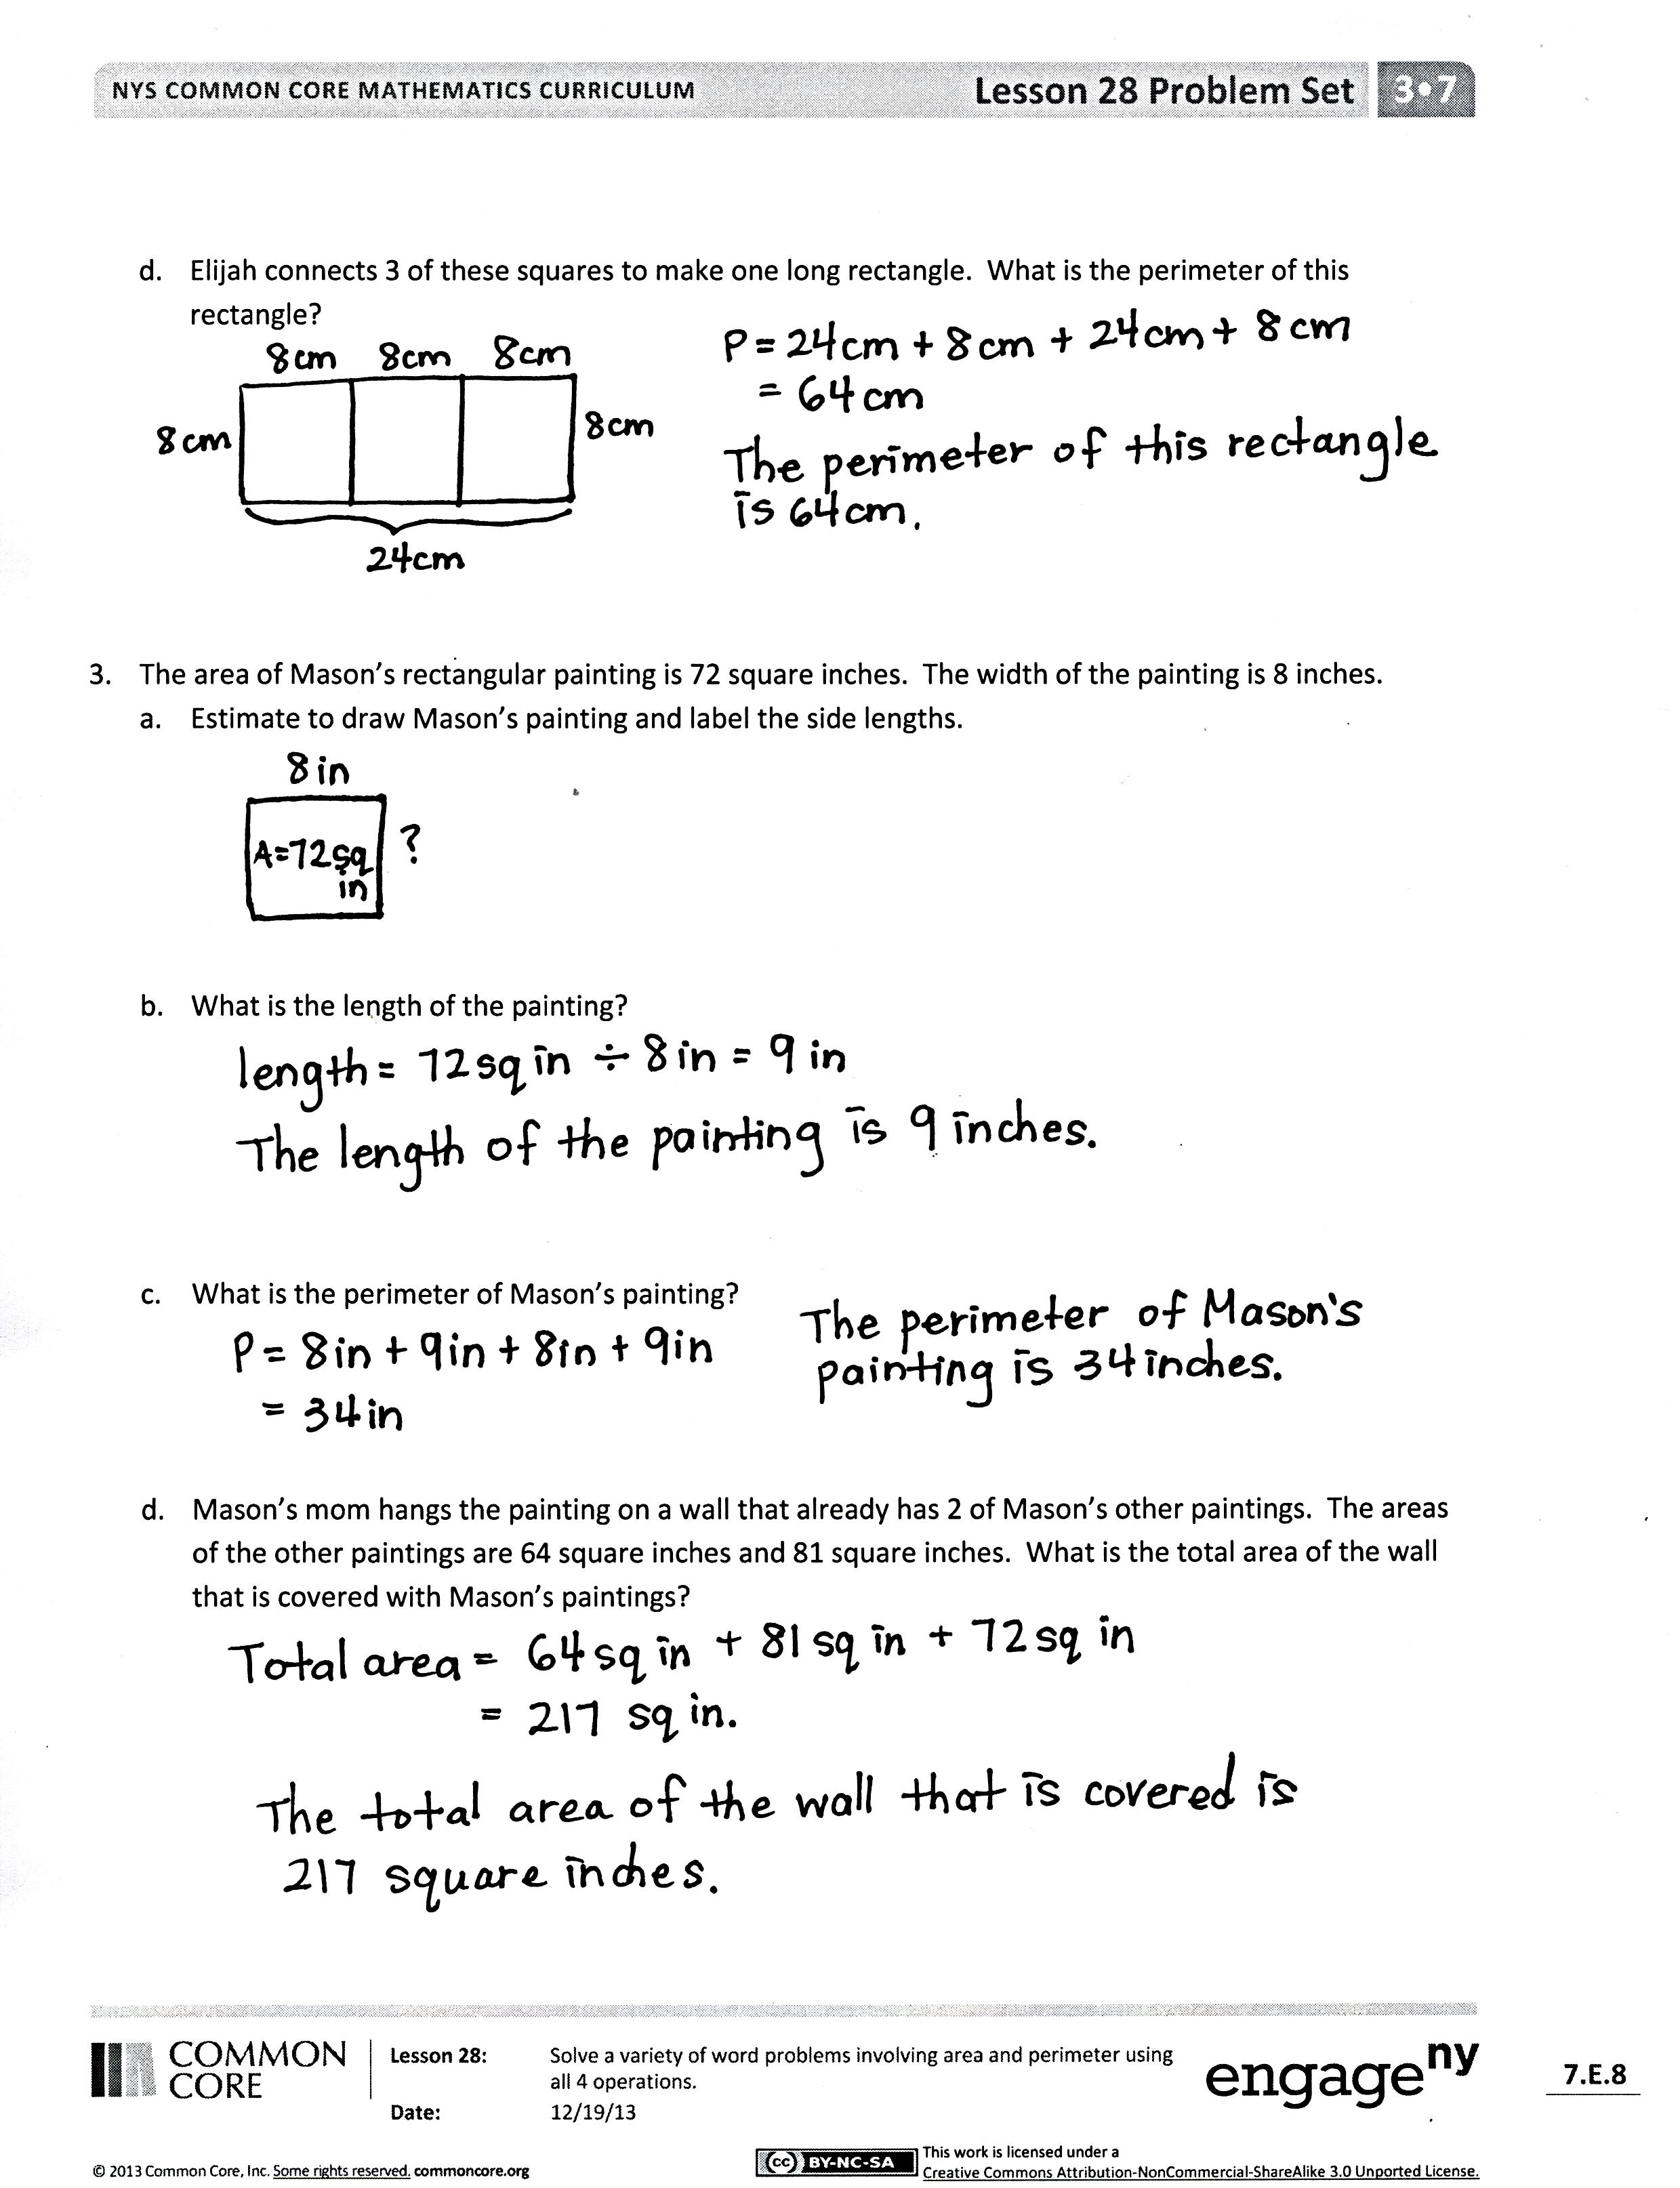 NYS COMMON CORE MATHEMATICS CURRICULUM Lesson 28 Problem Set 3•7
d. Elijah connects 3 of these squares to make one long rectangle. What is the perimeter of this
rectangle?
8cm 8cm 8cm
8cm
8cm
24cm
P = 24cm + 8cm + 24cm + 8cm
= 64cm
The perimeter of this rectangle
is 64cm.
3. The area of Mason's rectangular painting is 72 square inches. The width of the painting is 8 inches.
a. Estimate to draw Mason's painting and label the side lengths.
8in
A=72sq
in
?
b. What is the length of the painting?
length = 72sq in ÷ 8in = 9in
The length of the painting is 9 inches.
c. What is the perimeter of Mason's painting?
P = 8in + 9in + 8in + 9in
= 34in
The perimeter of Mason's
painting is 34 inches.
d. Mason's mom hangs the painting on a wall that already has 2 of Mason's other paintings. The areas
of the other paintings are 64 square inches and 81 square inches. What is the total area of the wall
that is covered with Mason's paintings?
Total area = 64sq in + 81sq in + 72sq in
= 217 sq in.
The total area of the wall that is covered is
217 square inches.
COMMON
CORE
Lesson 28: Solve a variety of word problems involving area and perimeter using
all 4 operations.
Date: 12/19/13
engageny
7.E.8
© 2013 Common Core, Inc. Some rights reserved. commoncore.org
cc BY-NC-SA
This work is licensed under a
Creative Commons Attribution-NonCommercial-ShareAlike 3.0 Unported License.